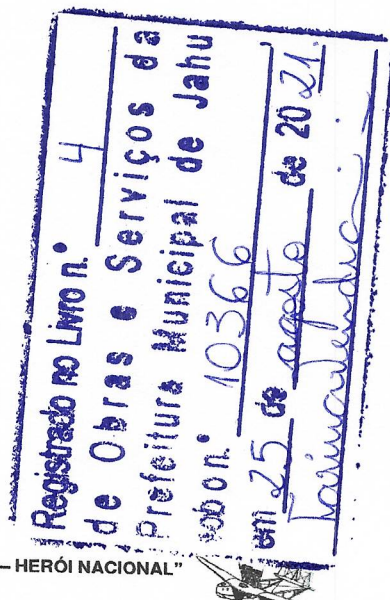 Registrado no Livro n.º 4
de Obras e Serviços da
Prefeitura Municipal de Jahu
sob o n.º 10366
em 25 de agosto de 2021.
– HERÓI NACIONAL”